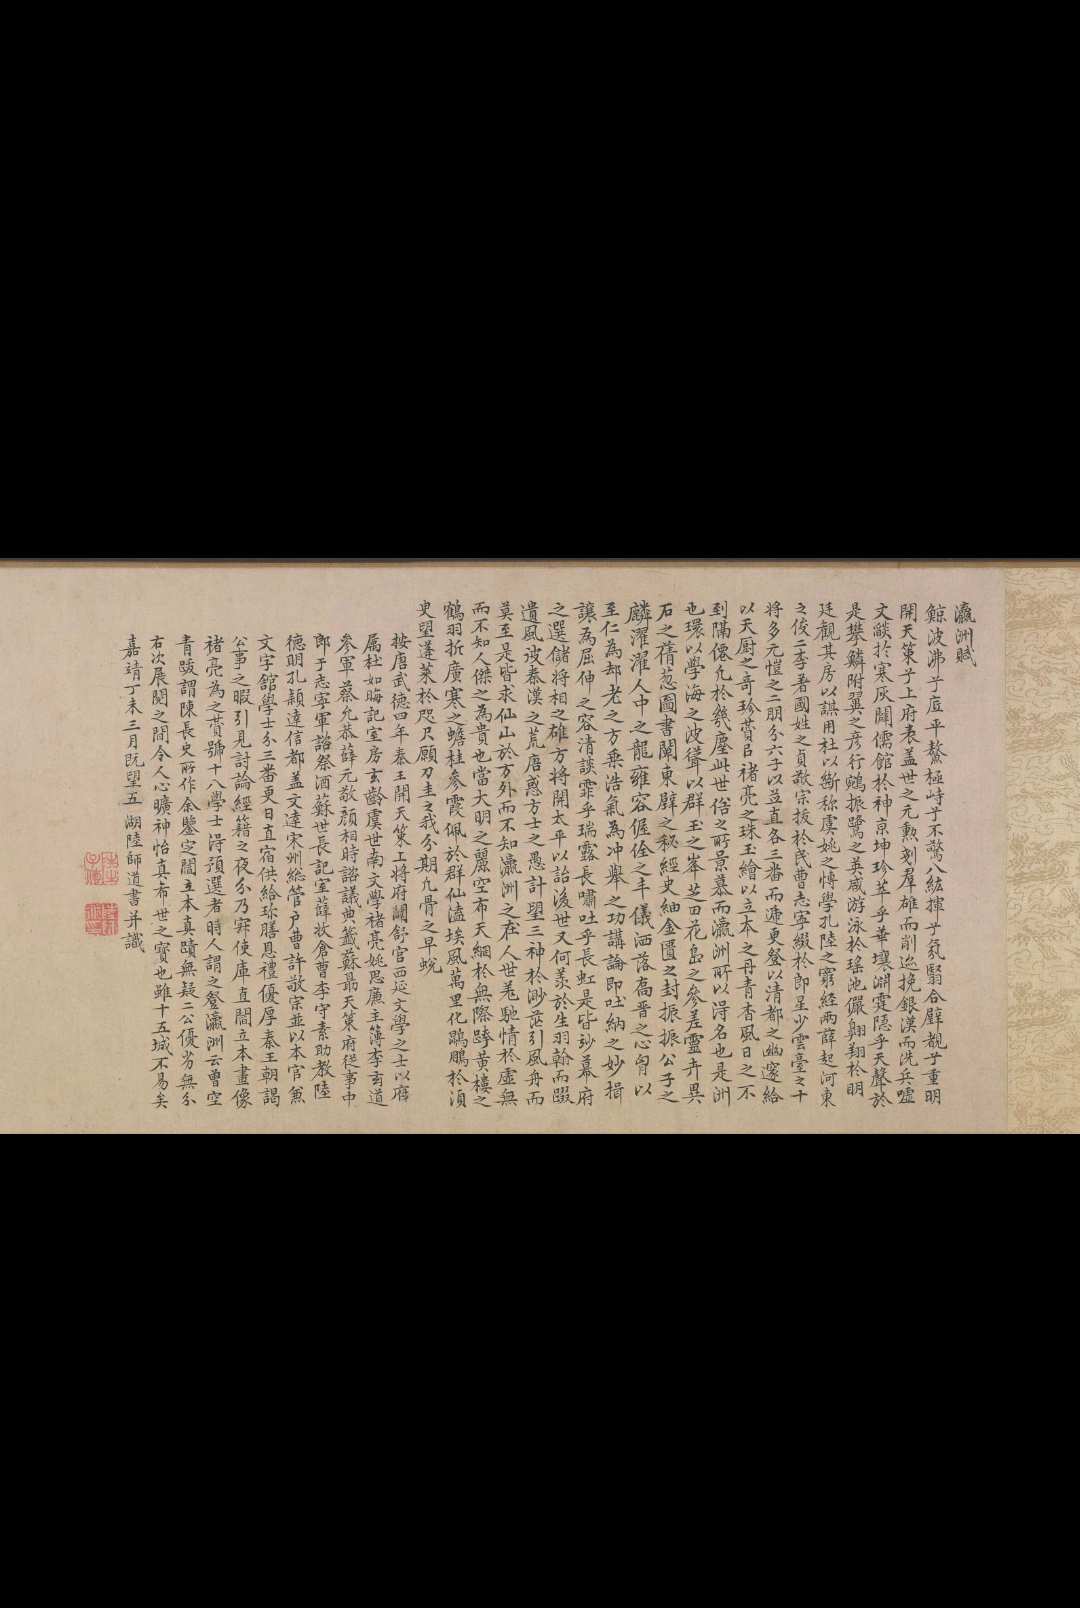 瀛洲賦
鯨波沸兮疸平鰲極峙兮不驚八紘揮兮氛翳合璧覩兮重明
開天策兮上府表蓋世之元勲刻羣雄而削迹挽銀漢而洗兵噓
文燄於寒灰闢儒館於神京坤珍萃乎華壤淵霆隱乎天聲於
是攀鱗附翼之彥行鵷振鷺之英咸游泳於瑤池儼翺翔於明
廷觀其房以謀用杜以斷称虞姚之慱學孔陸之窮經兩薛起河東
之俊二李著國姓之貞敬宗拔於民曹志寧綴於郎星少雲臺之十
將多元愷之二朋分六子以並直各三番而遞更登以清都之幽邃給
以天厨之奇珍賛㠯褚亮之珠玉繪以立本之丹青杳風日之不
到隔僊凡於幾塵此世俗之所景慕而瀛洲所以淂名也是洲
也環以學海之波聳以群玉之峯芝田花島之參差靈卉異
石之蒨葱圖書闡東壁之秘經史紬金匱之封振振公子之
麟濯濯人中之龍雍容偓佺之丰儀洒落喬晋之心匈以
至仁為却老之方乗浩氣為冲舉之功講論即吐納之妙揖
讓為屈伸之容清談霏乎瑞露長嘯吐乎長虹是皆玅幕府
之選儲將相之雄方將開太平以詒後世又何羨於生羽翰而躡
遺風彼秦漢之荒唐惑方士之愚計望三神於渺茫引風舟而
莫至是皆求仙山於方外而不知瀛洲之在人世羌馳情於虛無
而不知人傑之為貴也當大明之麗空布天綱於無際跨黄樓之
鶴羽折廣寒之蟾桂參霞佩於群仙溘埃風萬里化鵾鵬於湏
臾望蓬莱於咫尺願刀圭之我分期凢骨之早蛻
按唐武德四年秦王開天策上將府闢舒宮西延文學之士以府
属杜如晦記室房玄齡虞世南文學褚亮姚思廉主簿李玄道
參軍蔡允恭薛元敬顔相時諮議典籤蘇勗天策府從事中
郎于志寧軍諮祭酒蘇世長記室薛收倉曹李守素助教陸
德明孔穎達信都盖文達宋州総管户曹許敬宗並以本官兼
文字館學士分三畨更日直宿供給珎膳恩禮優厚秦王朝謁
公事之暇引見討論經籍之夜分乃寐使庫直閻立本畫像
褚亮為之賛號十八學士淂預選者時人謂之登瀛洲云曾空
青跋謂陳長史所作余鑒定閻立本真蹟無疑二公優劣無分
右次展閱之間令人心曠神怡真希世之寶也雖十五城不易矣
嘉靖丁未三月既望五湖陸師道書并識